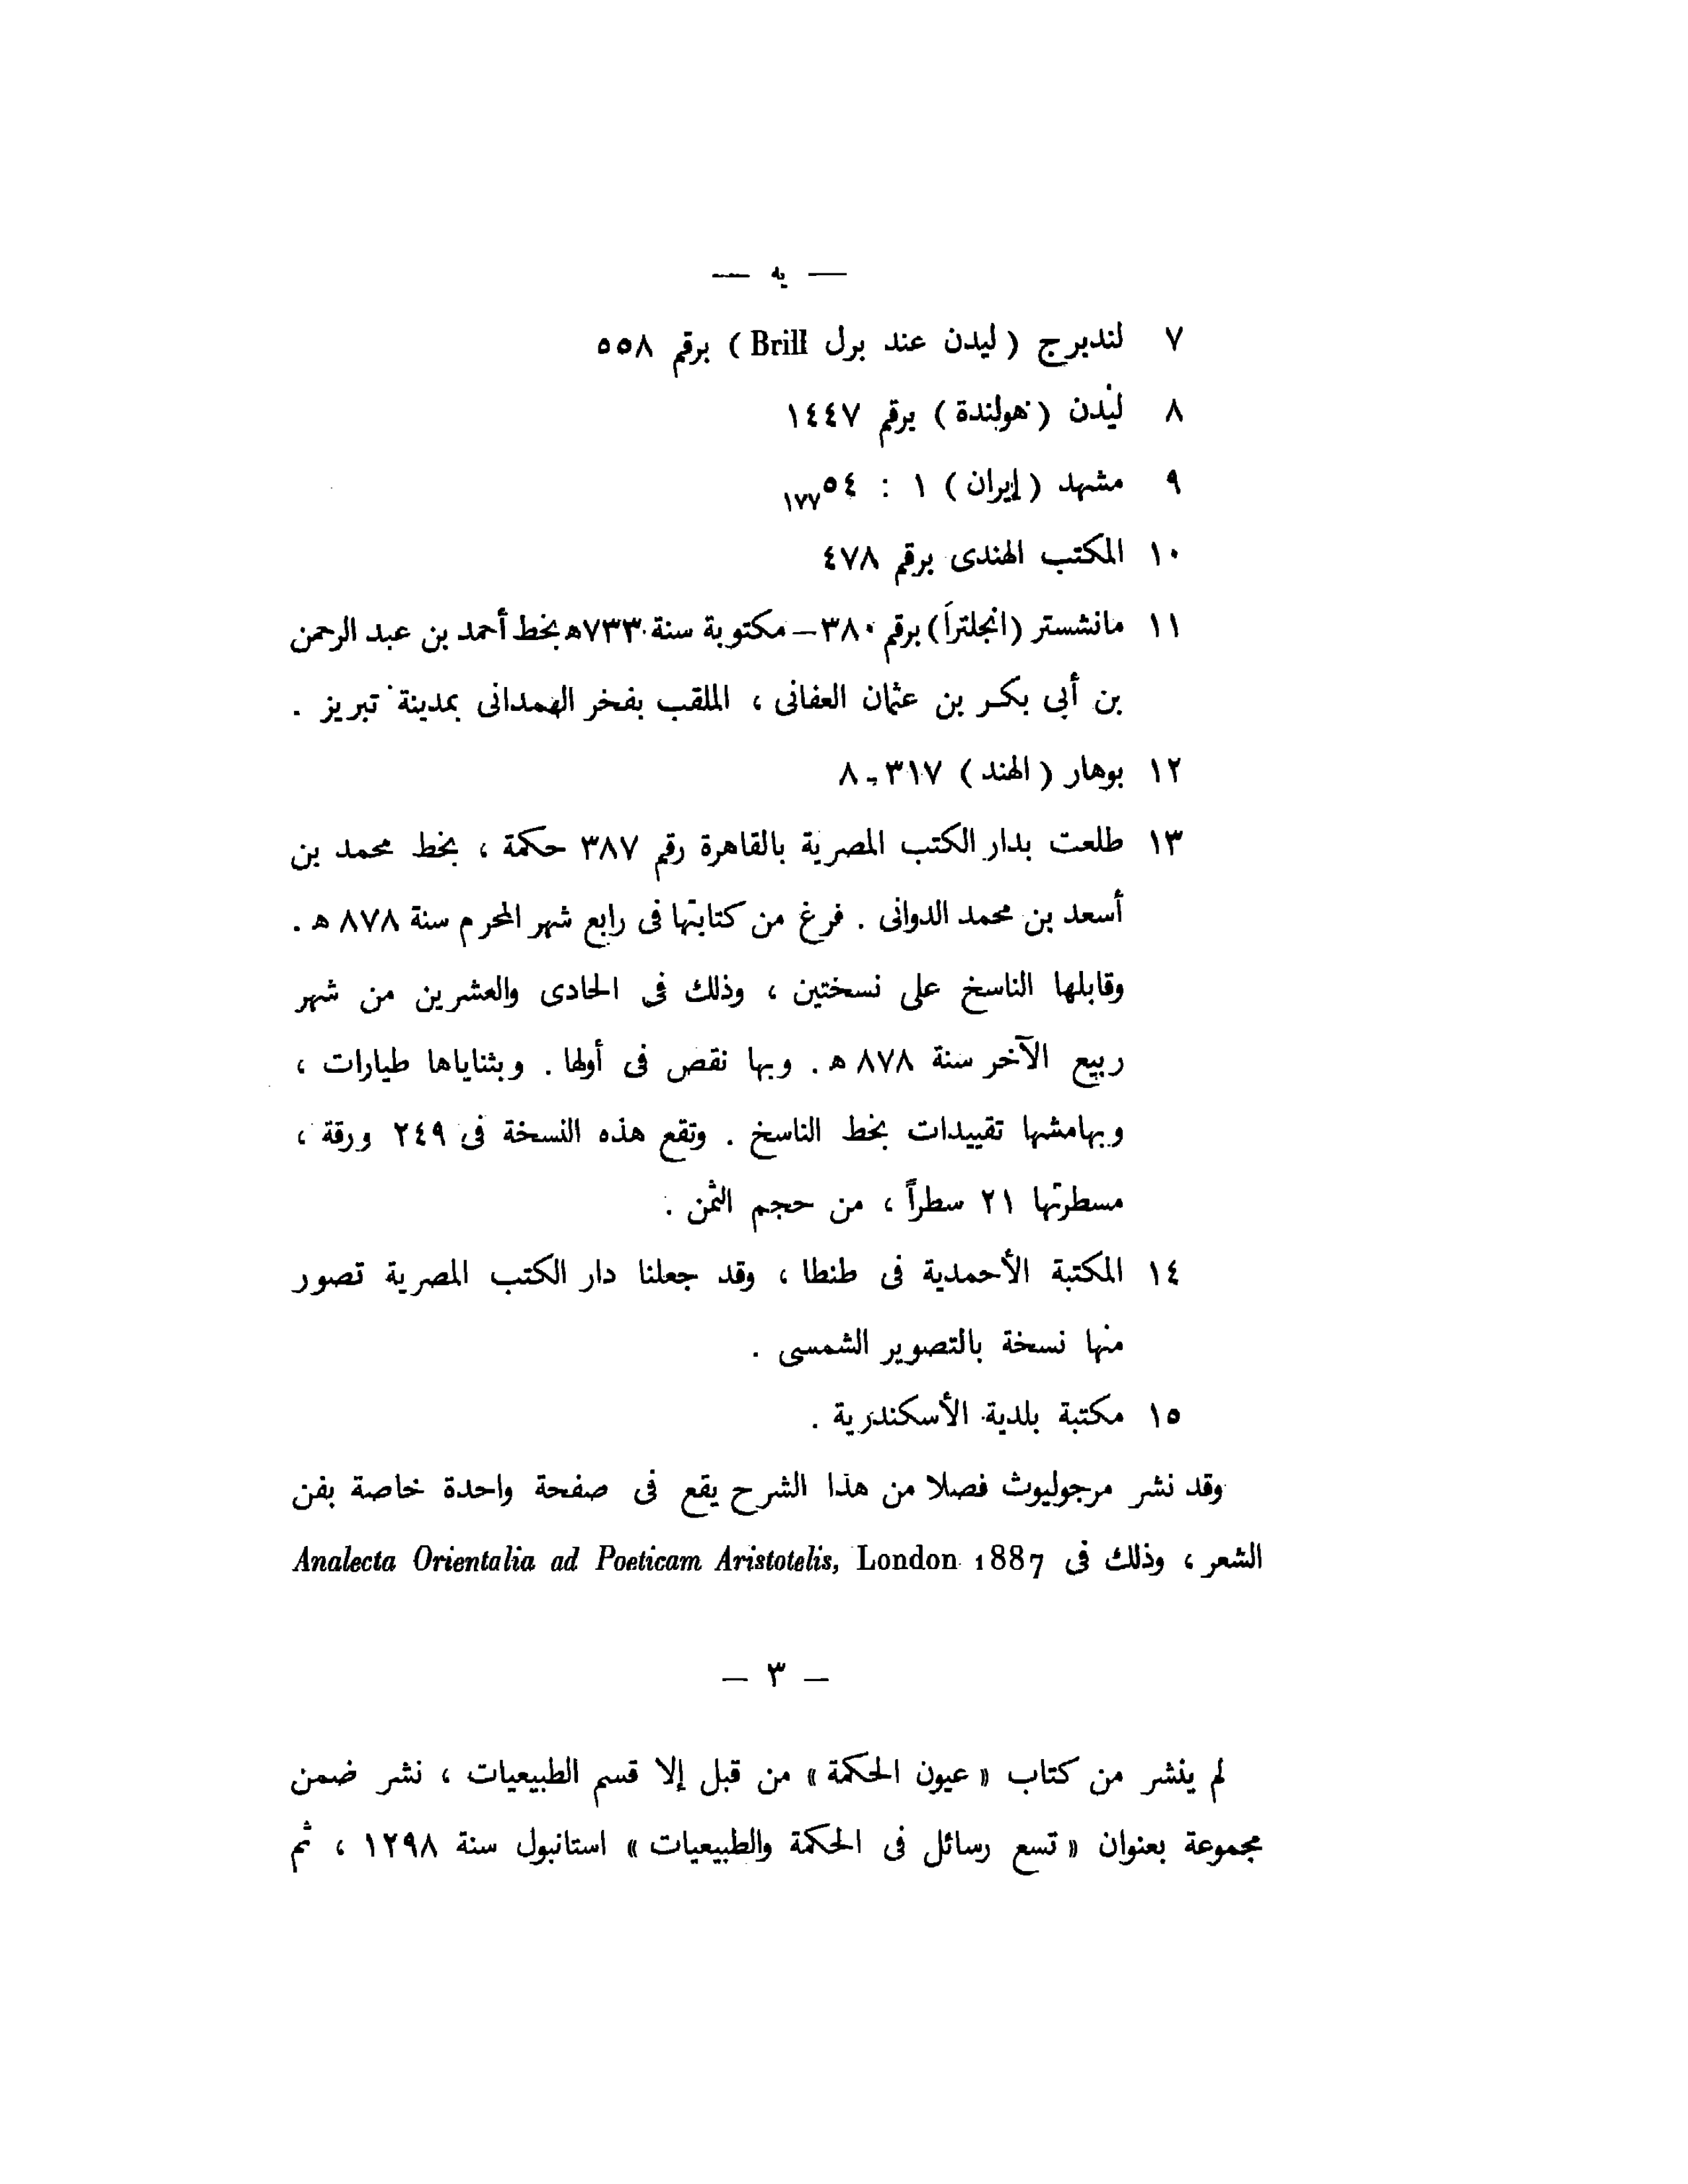 — يه —
٧ لندبرج ( ليدن عند برل Brill ) برقم ٥٥٨
٨ ليدن ( هولندة ) برقم ١٤٤٧
٩ مشهد ( إيران ) ١ : ٥٤ ١٧٧
١٠ المكتب الهندى برقم ٤٧٨
١١ مانشستر (انجلترا) برقم ٣٨٠ – مكتوبة سنة ٧٣٣ﻫ بخط أحمد بن عبد الرحمن
بن أبى بكر بن عثمان العفانى ، الملقب بفخر الهمدانى بمدينة تبريز .
١٢ بوهار ( الهند ) ٣١٧ - ٨
١٣ طلعت بدار الكتب المصرية بالقاهرة رقم ٣٨٧ حكمة ، بخط محمد بن
أسعد بن محمد الدوانى . فرغ من كتابتها فى رابع شهر المحرم سنة ٨٧٨ ﻫ .
وقابلها الناسخ على نسختين ، وذلك فى الحادى والعشرين من شهر
ربيع الآخر سنة ٨٧٨ ﻫ . وبها نقص فى أولها . وبثناياها طيارات ،
وبهامشها تقييدات بخط الناسخ . وتقع هذه النسخة فى ٢٤٩ ورقة ،
مسطرتها ٢١ سطراً ، من حجم الثمن .
١٤ المكتبة الأحمدية فى طنطا ، وقد جعلنا دار الكتب المصرية تصور
منها نسخة بالتصوير الشمسى .
١٥ مكتبة بلدية الأسكندرية .
وقد نشر مرجوليوث فصلا من هذا الشرح يقع فى صفحة واحدة خاصة بفن
الشعر ، وذلك فى Analecta Orientalia ad Poeticam Aristotelis, London 1887
– ٣ –
لم ينشر من كتاب « عيون الحكمة » من قبل إلا قسم الطبيعيات ، نشر ضمن
مجموعة بعنوان « تسع رسائل فى الحكمة والطبيعيات » استانبول سنة ١٢٩٨ ، ثم